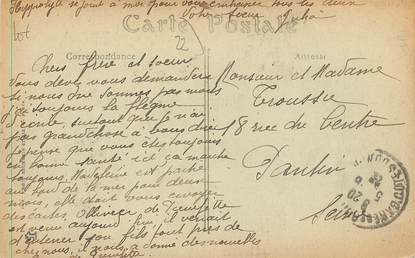 Hippolyte se joint à moi pour vous embrasser tous les deux
Votre sœur
Carte Postale
22
Correspondance
Adresse
Chers frère et sœur
Vous devez vous demander
si nous ne sommes pas morts
j'ai toujours la flegme
d'écrire, surtout que je n'ai
pas grand chose à vous dire
je pense que vous êtes toujours
en bonne santé ici ça marche
toujours. Madeleine est partie
au bord de la mer pour deux
mois, elle doit vous envoyer
des cartes. Ollivier, de
est venu aujourd'hui, il venait
son fils tout près de
chez nous, il nous a donné des nouvelles
de
Monsieur et Madame
Troussu
18 rue du Centre
Pantin
Seine